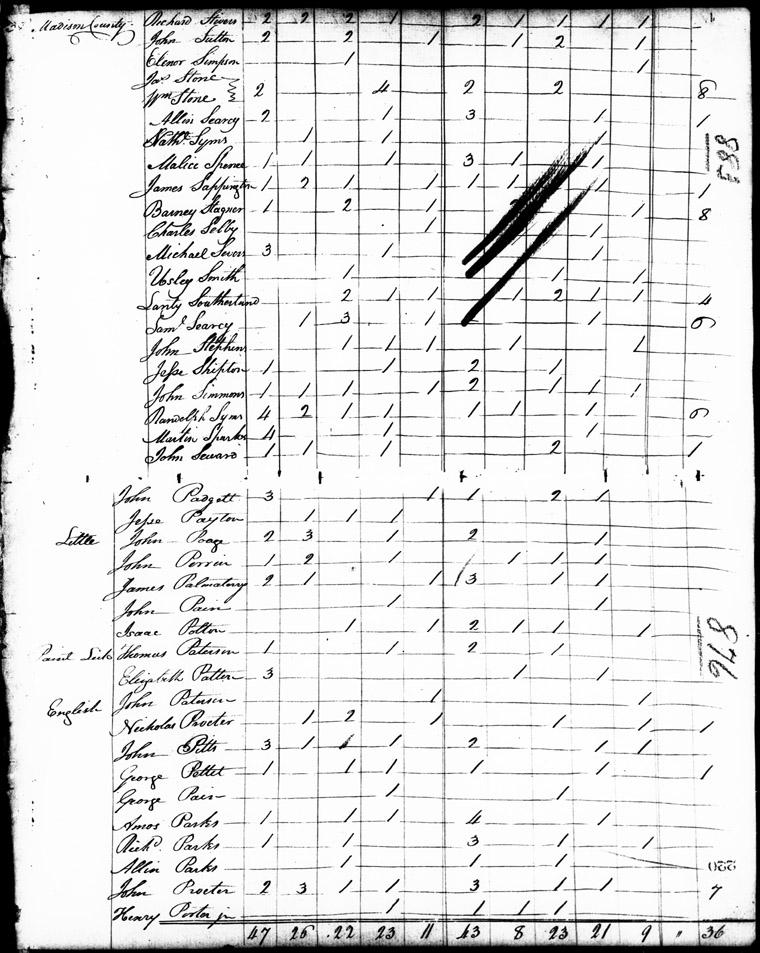 Madison County Richard Stivers 2 2 2 1 2 1 1 1 1
John Sutton 2 2 1 1 2 1
Elenor Simpson 1 1
Jas. Stone
Wm Stone 2 4 2 2 8
Allin Searcy 2 1 3 1 1
Nathl. Syms 1 1 1
Malice Spence 1 1 1 3 1 1
James Sappington 1 2 1 1 1 1 1
Barney Stagner 1 2 1 1 8
Charles Selby 1 1
Michael 3 1 1
Usley Smith 1 1 1
Lanty Southerland 2 1 1 1 2 1 1 4
Saml. Searcy 1 3 1 1 6
John Stephens 1 1 1 1 1
Jesse Shipton 1 1 2 1
John Simmons 1 1 1 1 2 1 1 1
Randolph Syms 4 2 1 1 1 1 1 6
Martin Sparks 4 1 1
John Seward 1 1 1 2 1
588
John Padgett 3 1 1 2 1
Jesse Payton 1 1 1
Little John Poage 2 3 1 2 1
John Perrin 1 2 1 1 1 1
James Palmatery 2 1 1 3 1 1
John Pain 1 1
Isaac Polton 1 1 2 1 1 1
Paint Lick Thomas Paterson 1 1 2 1
Elizabeth Patten 3 1 1
English John Paterson 1 1
Nicholas Procter 1 2 1 1 1 1
John Pitts 3 1 1 1 2 1 1
George Pettet 1 1 1 1 1 1
George Pain 1 1
Amos Parks 1 1 1 4 1
Richd. Parks 1 1 3 1 1
Allin Parks 1 1 1
John Procter 2 3 1 1 3 1 1 7
Henry Porter jr 1 1 1 1
47 26 22 23 11 43 8 23 21 9 " 36
220